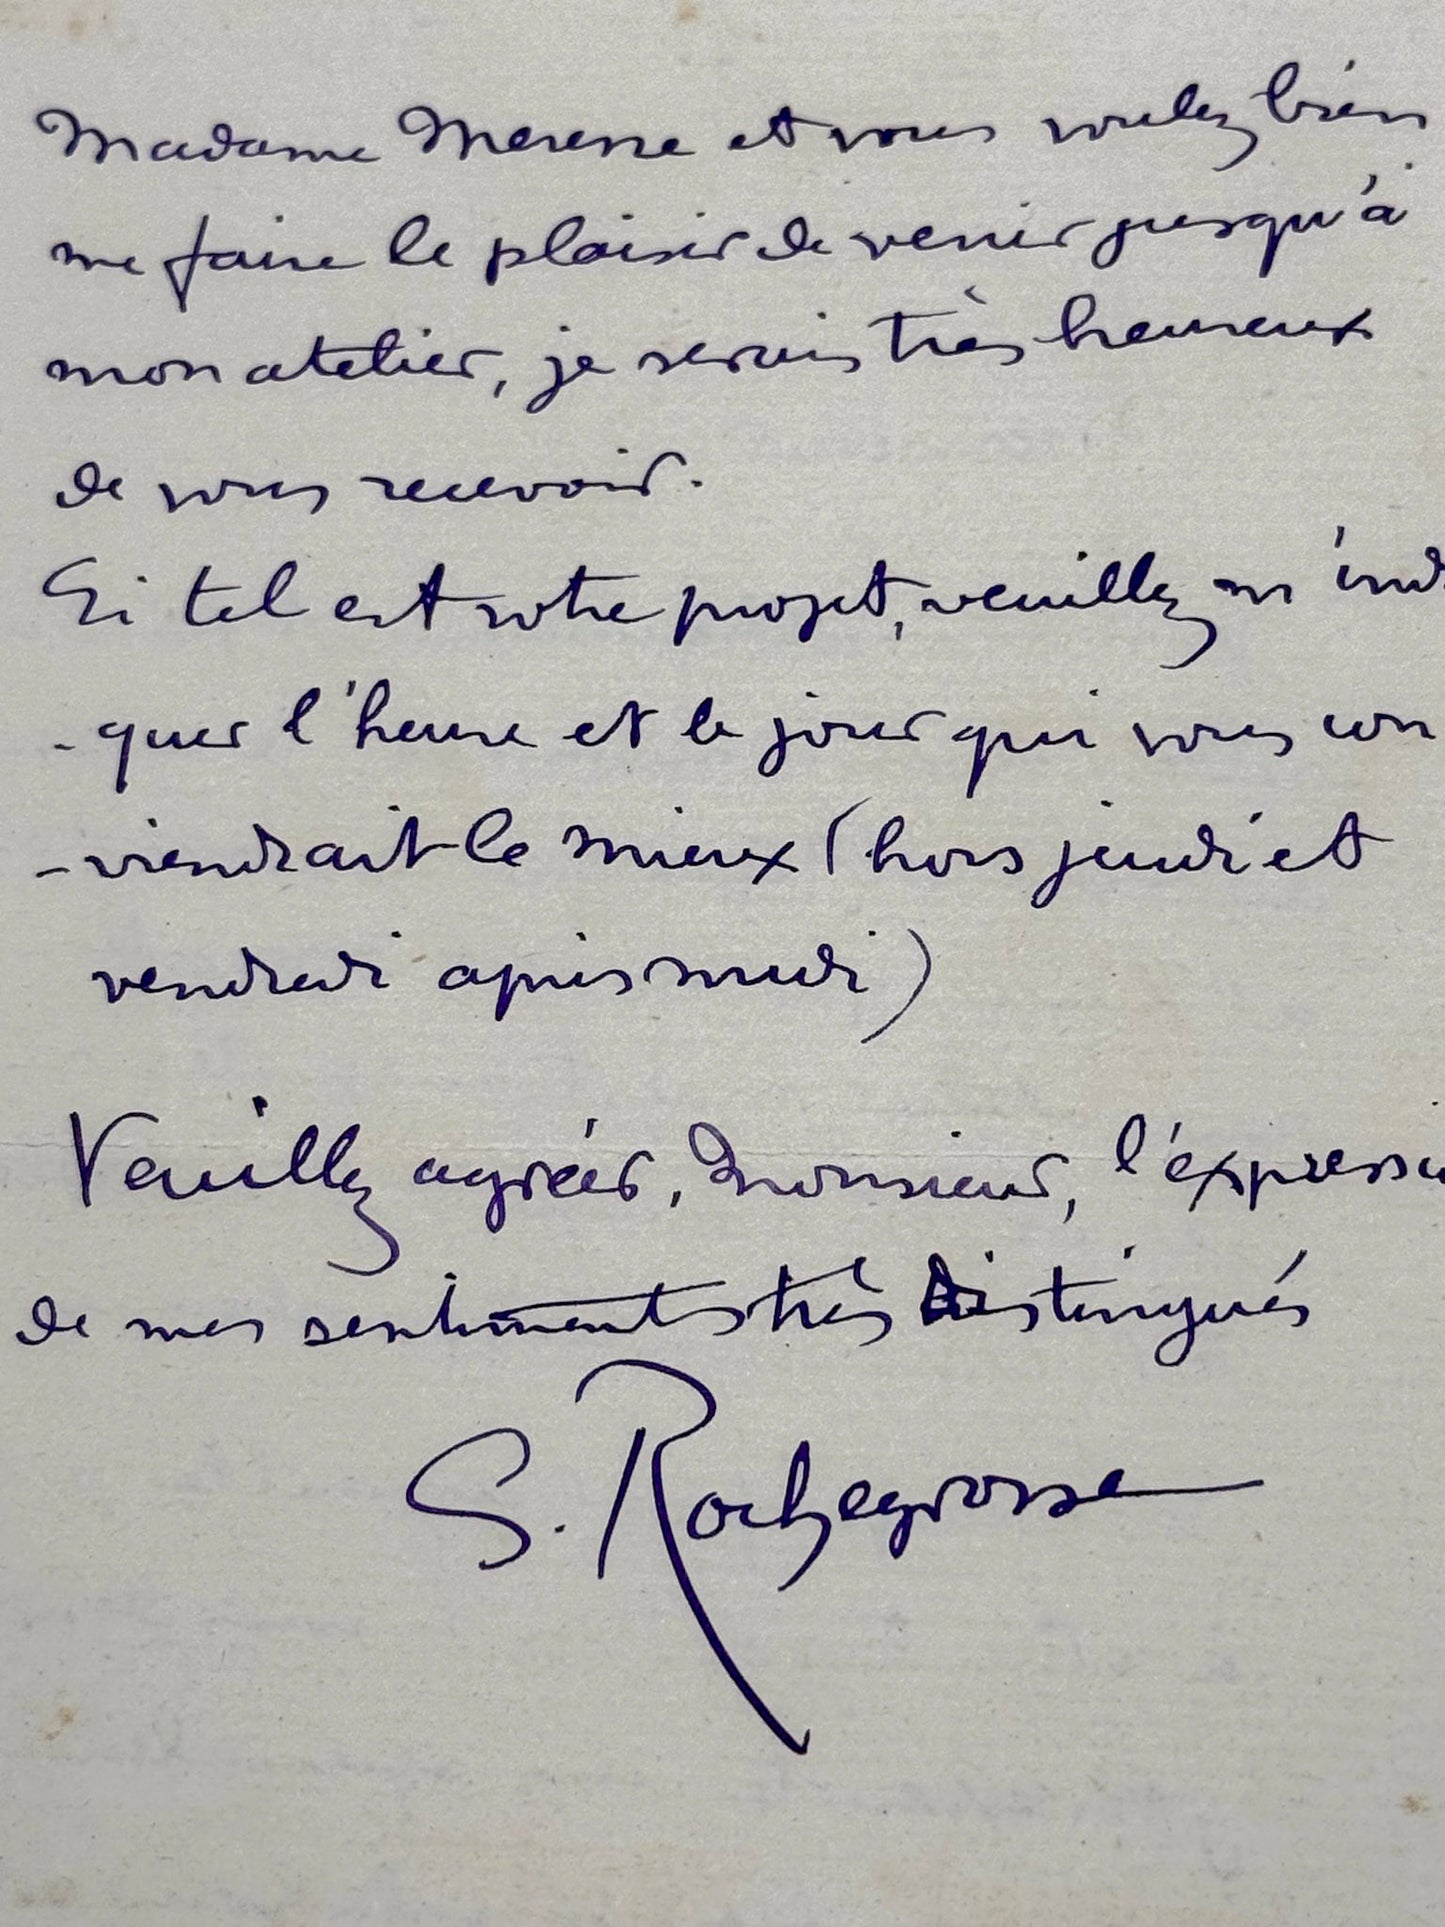 Madame Meresse et vous voulez bien
me faire le plaisir de venir jusqu'à
mon atelier, je serais très heureux
de vous recevoir.
Si tel est votre projet, veuillez m'indi
-quer l'heure et le jour qui vous con
-viendrait le mieux (hors jeudi et
vendredi après midi)
Veuillez agréer, Monsieur, l'expressio
de mes sentiments très distingués
G. Rochegrosse